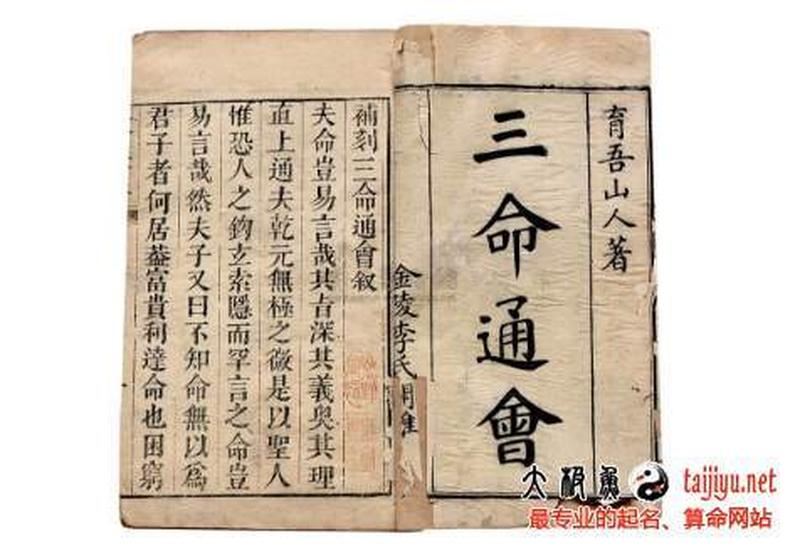 育吾山人著
三命通會
金陵李氏
補刻三命通會叙
夫命豈易言哉其旨深其義奥其理
直上通夫乾元無極之微是以聖人
惟恐人之鉤玄索隱而罕言之命豈
易言哉然夫子又曰不知命無以爲
君子者何居葢富貴利達命也困窮
太极鱼 taijiyu.net
最专业的起名、算命网站